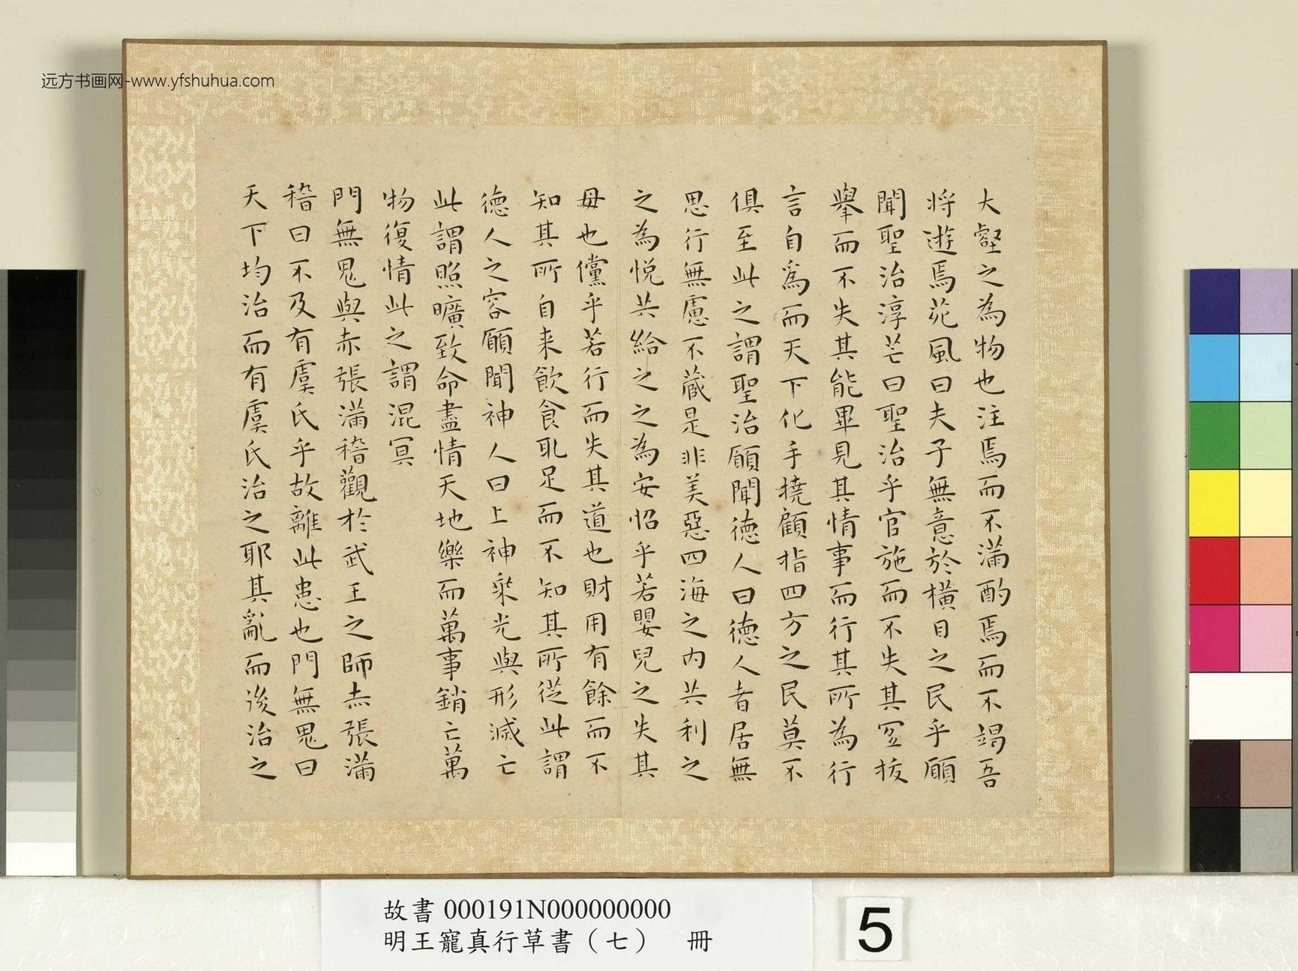 远方书画网-www.yfshuhua.com
大壑之為物也注焉而不滿酌焉而不竭吾
將遊焉苑風曰夫子無意於橫目之民乎願
聞聖治淳芒曰聖治乎官施而不失其宜拔
舉而不失其能畢見其情事而行其所為行
言自為而天下化手撓顧指四方之民莫不
俱至此之謂聖治願聞德人曰德人者居無
思行無慮不藏是非美惡四海之內共利之
之為悅共給之之為安怊乎若嬰兒之失其
母也儻乎若行而失其道也財用有餘而不
知其所自来飲食取足而不知其所從此謂
德人之容願聞神人曰上神乘光與形滅亡
此謂照曠致命盡情天地樂而萬事銷亡萬
物復情此之謂混冥
門無鬼與赤張滿稽觀於武王之師赤張滿
稽曰不及有虞氏乎故離此患也門無鬼曰
天下均治而有虞氏治之耶其亂而後治之
故書000191N000000000
明王寵真行草書（七） 冊
5